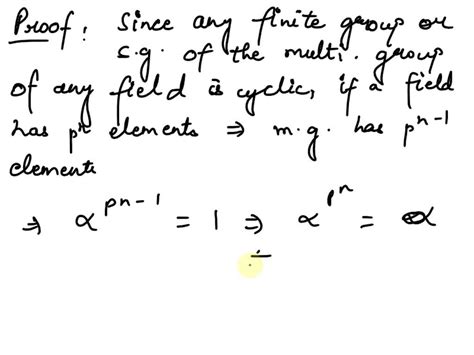 Proof: Since any finite group or
s.g. of the multi. group
of any field is cyclic, if a field
has pⁿ elements ⇒ m.g. has pⁿ⁻¹
elements
⇒ α^{pn-1} = 1 ⇒ α^{pⁿ} = α